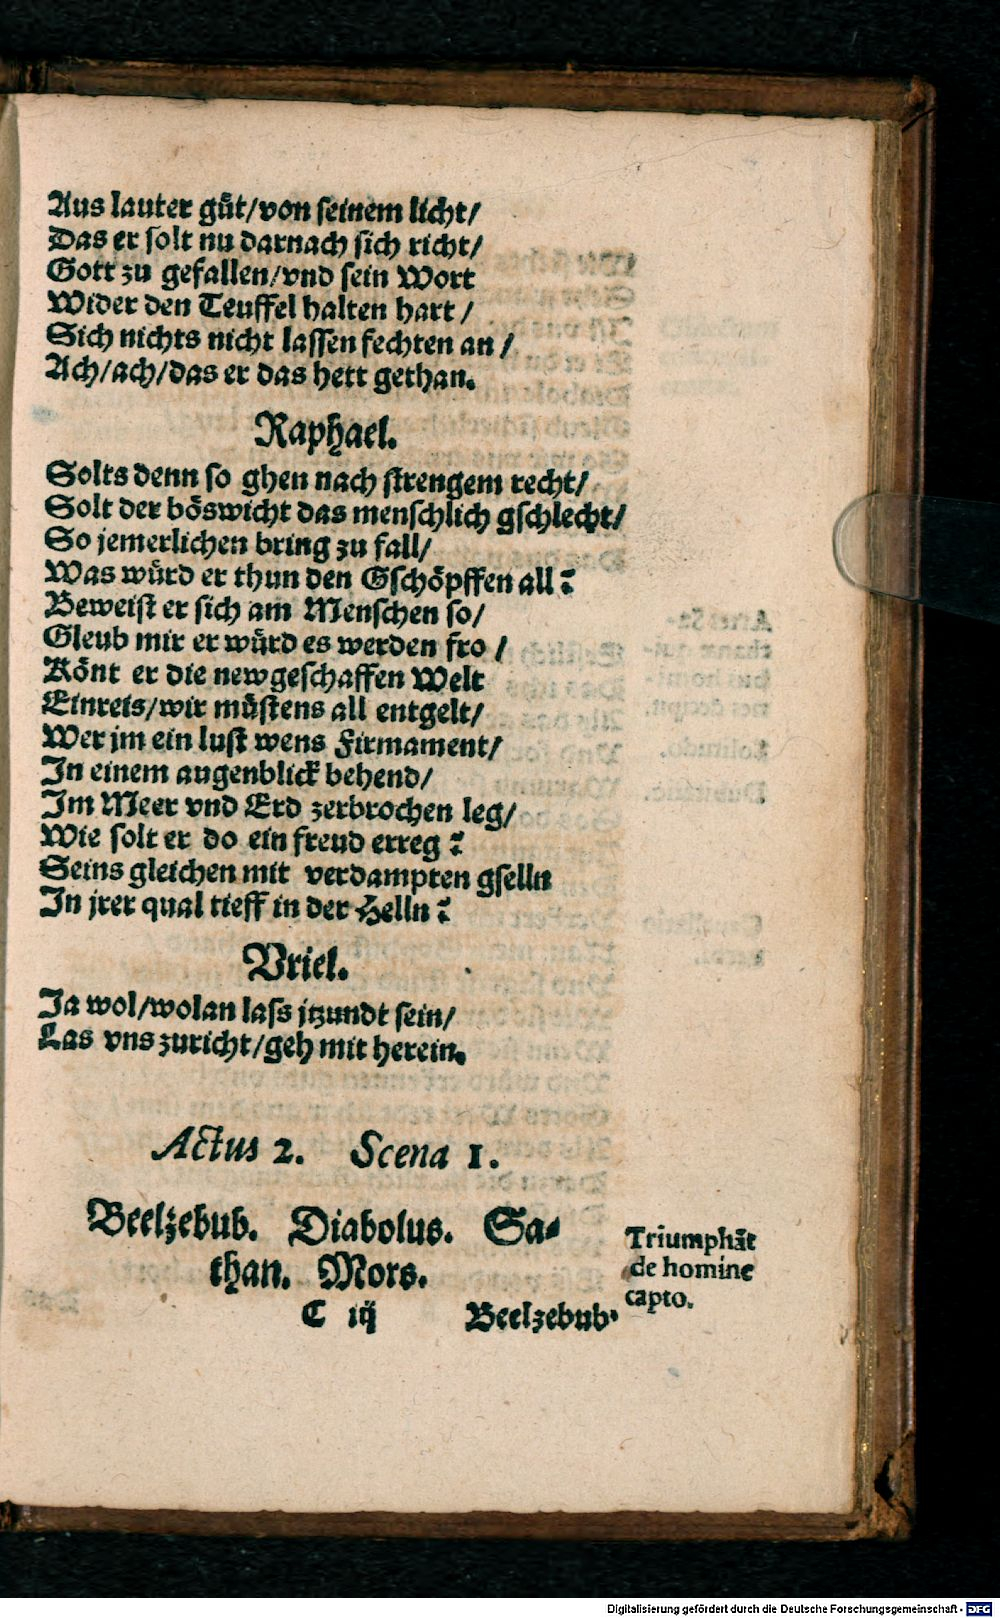 Aus lauter gůt/von seinem licht/
Das er solt nu darnach sich richt/
Gott zu gefallen/vnd sein Wort
Wider den Teuffel halten hart /
Sich nichts nicht lassen fechten an /
Ach/ach/das er das hett gethan.
Raphael.
Solts denn so ghen nach strengem recht/
Solt der böswicht das menschlich gschlecht/
So jemerlichen bring zu fall/
Was würd er thun den Gschöpffen all?
Beweist er sich am Menschen so/
Gleub mir er würd es werden fro /
Könt er die newgeschaffen Welt
Einreis/wir müstens all entgelt/
Wer jm ein lust wens Firmament/
In einem augenblick behend/
Im Meer vnd Erd zerbrochen leg/
Wie solt er do ein freud erreg?
Seins gleichen mit verdampten gselln
In jrer qual tieff in der Helln?
Vriel.
Ja wol/wolan lass jtzundt sein/
Las vns zuricht/geh mit herein.
Actus 2. Scena 1.
Beelzebub. Diabolus. Sa-
than. Mors.
Triumphāt
de homine
capto.
C iij Beelzebub.
Digitalisierung gefördert durch die Deutsche Forschungsgemeinschaft - DFG